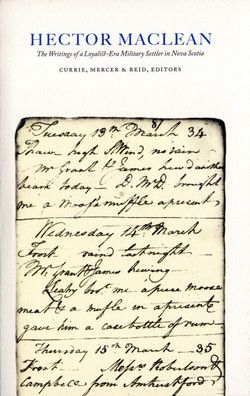 HECTOR MACLEAN
The Writings of a Loyalist-Era Military Settler in Nova Scotia
CURRIE, MERCER & REID, EDITORS
Tuesday 13th March 34
Thaw high S Wind, no rain
Mr Grant & James hew'd another
beam today — D. McD. brought
me a Moose muffle a present,
Wednesday 14th March
Frost rain last night —
Mr Grant & James hewing
bro't me a piece moose
meat & a mufle in a present
gave him a case bottle of rum
Thursday 15th March 35
Frost Messrs Robertson &
Campbell from Amherstford